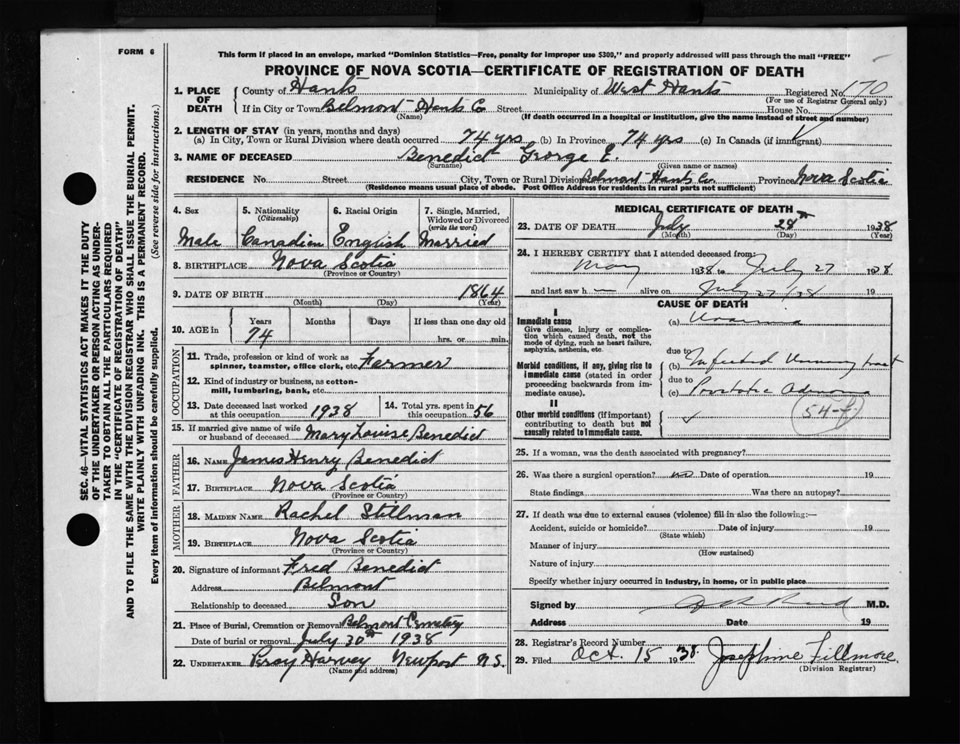 FORM 6
This form if placed in an envelope, marked "Dominion Statistics—Free, penalty for improper use $300," and properly addressed will pass through the mail "FREE"
PROVINCE OF NOVA SCOTIA—CERTIFICATE OF REGISTRATION OF DEATH
SEC. 46—VITAL STATISTICS ACT MAKES IT THE DUTY
OF THE UNDERTAKER OR PERSON ACTING AS UNDER-
TAKER TO OBTAIN ALL THE PARTICULARS REQUIRED
IN THE "CERTIFICATE OF REGISTRATION OF DEATH"
AND TO FILE THE SAME WITH THE DIVISION REGISTRAR WHO SHALL ISSUE THE BURIAL PERMIT.
WRITE PLAINLY WITH UNFADING INK. THIS IS A PERMANENT RECORD.
Every item of information should be carefully supplied. (See reverse side for instructions.)
1. PLACE OF DEATH County of Hants Municipality of West Hants Registered No. 170
(For use of Registrar General only)
If in City or Town Belmont - Hants Co Street House No.
(Name) (If death occurred in a hospital or institution, give the name instead of street and number)
2. LENGTH OF STAY (in years, months and days)
(a) In City, Town or Rural Division where death occurred 74 yrs (b) In Province 74 yrs (c) In Canada (if immigrant)
3. NAME OF DECEASED Benedict George E.
(Surname) (Given name or names)
RESIDENCE No. Street City, Town or Rural Division Belmont - Hants Co. Province Nova Scotia
(Residence means usual place of abode. Post Office Address for residents in rural parts not sufficient)
4. Sex 5. Nationality (Citizenship) 6. Racial Origin 7. Single, Married, Widowed or Divorced (write the word)
Male Canadian English Married
8. BIRTHPLACE Nova Scotia
(Province or Country)
9. DATE OF BIRTH 1864
(Month) (Day) (Year)
10. AGE in Years Months Days If less than one day old
74 hrs. or min.
OCCUPATION
11. Trade, profession or kind of work as spinner, teamster, office clerk, etc. Farmer
12. Kind of industry or business, as cotton-mill, lumbering, bank, etc.
13. Date deceased last worked at this occupation 1938 14. Total yrs. spent in this occupation 56
15. If married give name of wife or husband of deceased Mary Louise Benedict
FATHER
16. NAME James Henry Benedict
17. BIRTHPLACE Nova Scotia
(Province or Country)
MOTHER
18. MAIDEN NAME Rachel Stillman
19. BIRTHPLACE Nova Scotia
(Province or Country)
20. Signature of informant Fred Benedict
Address Belmont
Relationship to deceased Son
21. Place of Burial, Cremation or Removal Belmont Cemetery
Date of burial or removal July 30th 1938
22. UNDERTAKER Percy Harvey Newport N.S.
(Name and address)
MEDICAL CERTIFICATE OF DEATH
23. DATE OF DEATH July 28th 1938
(Month) (Day) (Year)
24. I HEREBY CERTIFY that I attended deceased from:
May 1938 to July 27 1938
and last saw h alive on July 27/38 19
CAUSE OF DEATH
I
Immediate cause
Give disease, injury or complication which caused death, not the mode of dying, such as heart failure, asphyxia, asthenia, etc.
(a) Uraemia
due to
Morbid conditions, if any, giving rise to immediate cause (stated in order proceeding backwards from immediate cause).
(b) Infected Urinary tract
due to
(c) Prostatic Adenoma
54-f
II
Other morbid conditions (if important) contributing to death but not causally related to immediate cause.
25. If a woman, was the death associated with pregnancy?
26. Was there a surgical operation? no Date of operation 19
State findings Was there an autopsy?
27. If death was due to external causes (violence) fill in also the following:—
Accident, suicide or homicide? Date of injury 19
(State which)
Manner of injury
(How sustained)
Nature of injury
Specify whether injury occurred in industry, in home, or in public place
Signed by M.D.
Address Date 19
28. Registrar's Record Number
29. Filed Oct. 15 1938. Josephine Fillmore
(Division Registrar)